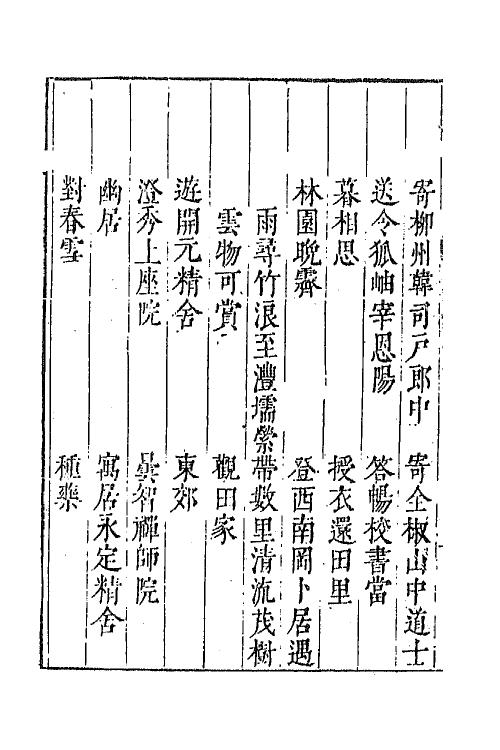 寄柳州韓司戶郎中　寄全椒山中道士
送令狐岫宰恩陽　答暢校書當
暮相思　授衣還田里
林園晚霽　登西南岡卜居遇
雨尋竹浪至灃壖縈帶數里清流茂樹
雲物可賞　觀田家
遊開元精舍　東郊
澄秀上座院　曇智禪師院
幽居　寓居永定精舍
對春雪　種藥